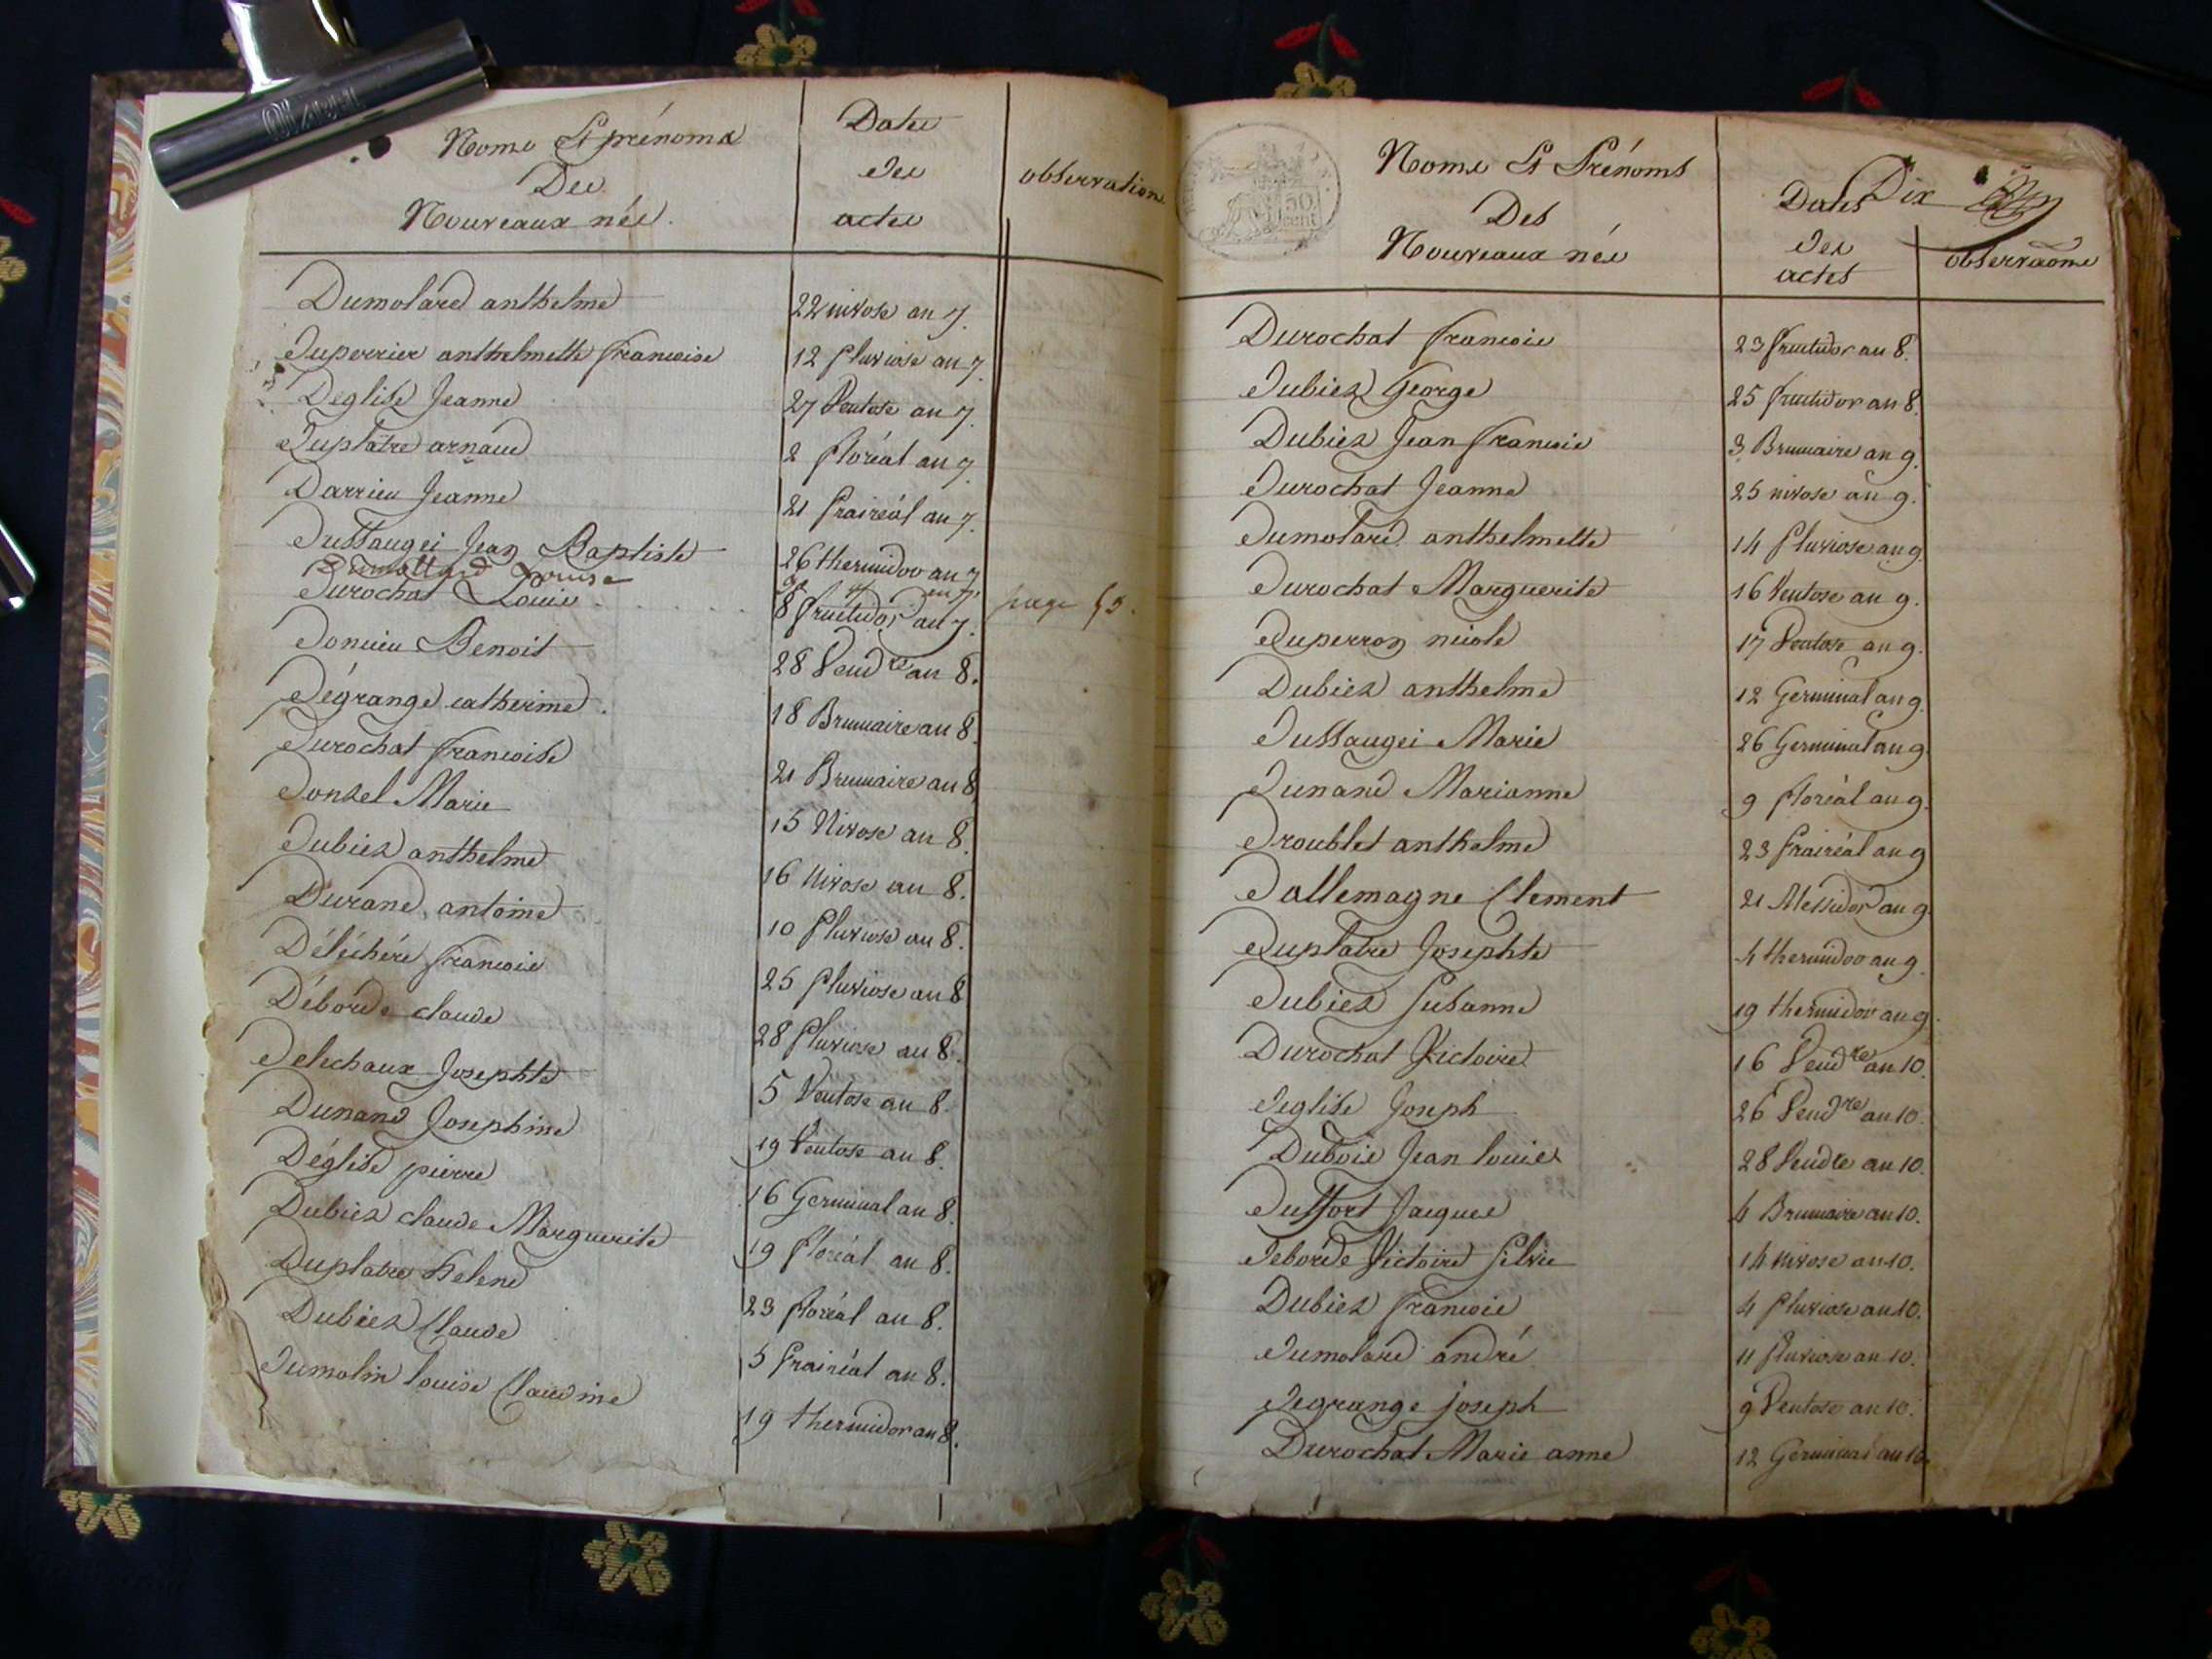 Noms Et prénoms
Des
Nouveaux nés.
Dates
des
actes
observations
Dumolard anthelme 22 nivose an 7.
Duperrier anthelmette françoise 12 pluviose an 7.
Deglise Jeanne 27 Ventose an 7.
Duplatre arnaud 2 floréal an 7.
Darrieu Jeanne 21 prairéal an 7.
Dussaugei Jean Baptiste 26 thermidor an 7
Dumollard Louise
Durochat Louis 8 fructidor an 7. page 55.
Donzieu Benoit 28 Vendre an 8.
Dégrange catherine. 18 Brumaire an 8.
Durochat françoise 21 Brumaire an 8
Donzel Marie 15 Nivose an 8.
Dubiez anthelme 16 Nivose an 8.
Durand antoine 10 pluviose an 8.
Déléchéré françois 25 pluviose an 8
Déborde claude 28 pluviose an 8.
Delechaux Josephte 5 Ventose an 8.
Dunand Josephine 19 Ventose an 8.
Déglise pierre 16 Germinal an 8.
Dubiez claude Marguerite 19 floréal an 8.
Duplatre helene 23 floréal an 8.
Dubiez Claude 5 prairéal an 8.
Dumolin louise Claudine 19 thermidor an 8.
50
cent
Noms Et Prénoms
Des
Nouveaux nés
Dix
Dates
des
actes
observaõns
Durochat francois 23 fructidor an 8.
Dubiez George 25 fructidor an 8.
Dubiez Jean francois 3 Brumaire an 9.
Durochat Jeanne 25 nivose an 9.
Dumolard anthelmette 14 pluviose an 9
Durochat Marguerite 16 Ventose an 9.
Duperron nicole 17 Ventose an 9.
Dubiez anthelme 12 Germinal an 9.
Dussaugei Marie 26 Germinal an 9.
Dunand Marianne 9 floréal an 9.
Droublet anthelme 23 prairéal an 9
Dallemagne Clement 21 Messidor an 9.
Duplatre Josephte 4 thermidor an 9.
Dubiez Susanne 19 thermidor an 9.
Durochat Victoire 16 Vendre an 10.
Deglise Joseph 26 Vendre an 10.
Dubois Jean louis 28 Vendre an 10.
Duffort Jacques 4 Brumaire an 10.
Deborde Victoire Silvie 14 nivose an 10.
Dubiez francois 4 pluviose an 10.
Dumolard andré 11 pluviose an 10.
Degrange joseph 9 Ventose an 10.
Durochat Marie anne 12 Germinal an 10.